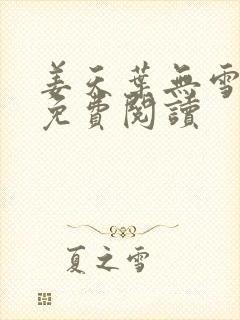 姜天葉無雪
免費閱讀
夏之雪